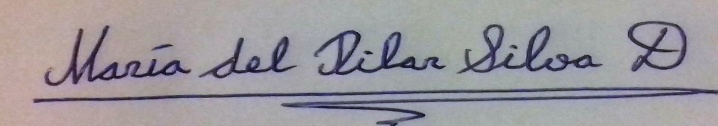 María del Pilar Silva D